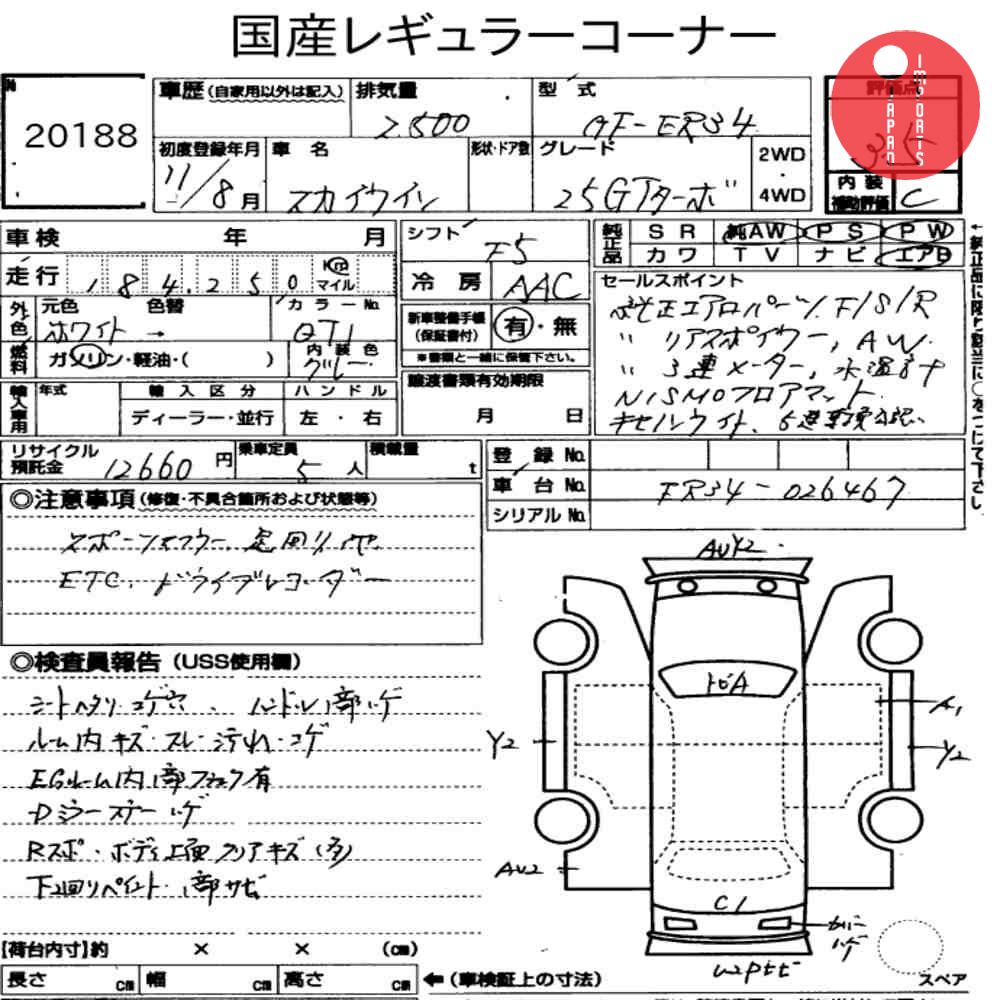 国産レギュラーコーナー
20188
車歴(自家用以外は記入)
排気量
2500
型 式
GF-ER34
評価点
3.5
JAPAN IMPORTS
初度登録年月
11/8月
車 名
スカイライン
形状・ドア数
グレード
25GTターボ
2WD
・
4WD
内装
補助評価
C
車検 年 月
シフト
F5
純正品
SR 純AW PS PW
カワ TV ナビ エアB
走行
184,250
Km
マイル
冷房
AAC
セールスポイント
純正エアロパーツ F/S/R
〃 リアスポイラー, AW.
〃 3連メーター, 水温計
NISMOフロアマット.
キセノンライト、
外色
元色 色替
ホワイト →
カラーNo.
QT1
新車整備手帳
(保証書付)
有・無
※書類と一緒に保管下さい。
燃料
ガソリン・軽油・( )
内装色
グレー
譲渡書類有効期限
月 日
輸入車用
年式
輸入区分
ハンドル
ディーラー・並行
左・右
リサイクル
預託金
12660円
乗車定員
5人
積載量
t
登録No.
車台No.
ER34-026467
シリアルNo.
◎注意事項(修復・不具合箇所および状態等)
スポーツマフラー、足回り他
ETC、ドライブレコーダー
◎検査員報告(USS使用欄)
シートヘタリ・コゲ穴、ハンドル1部ハゲ
ルーム内キズ・スレ・汚れ・コゲ
EGルーム内1部フック有
Dミラーステーハゲ
Rスポ・ボディ上面クリアキズ(多)
下回りペイント・1部サビ
AUY2
トビA
A1
Y2
Y2
AU2
C1
カバー
ハゲ
【荷台内寸】約 × × (cm)
長さ cm 幅 cm 高さ cm
←(車検証上の寸法)
スペア